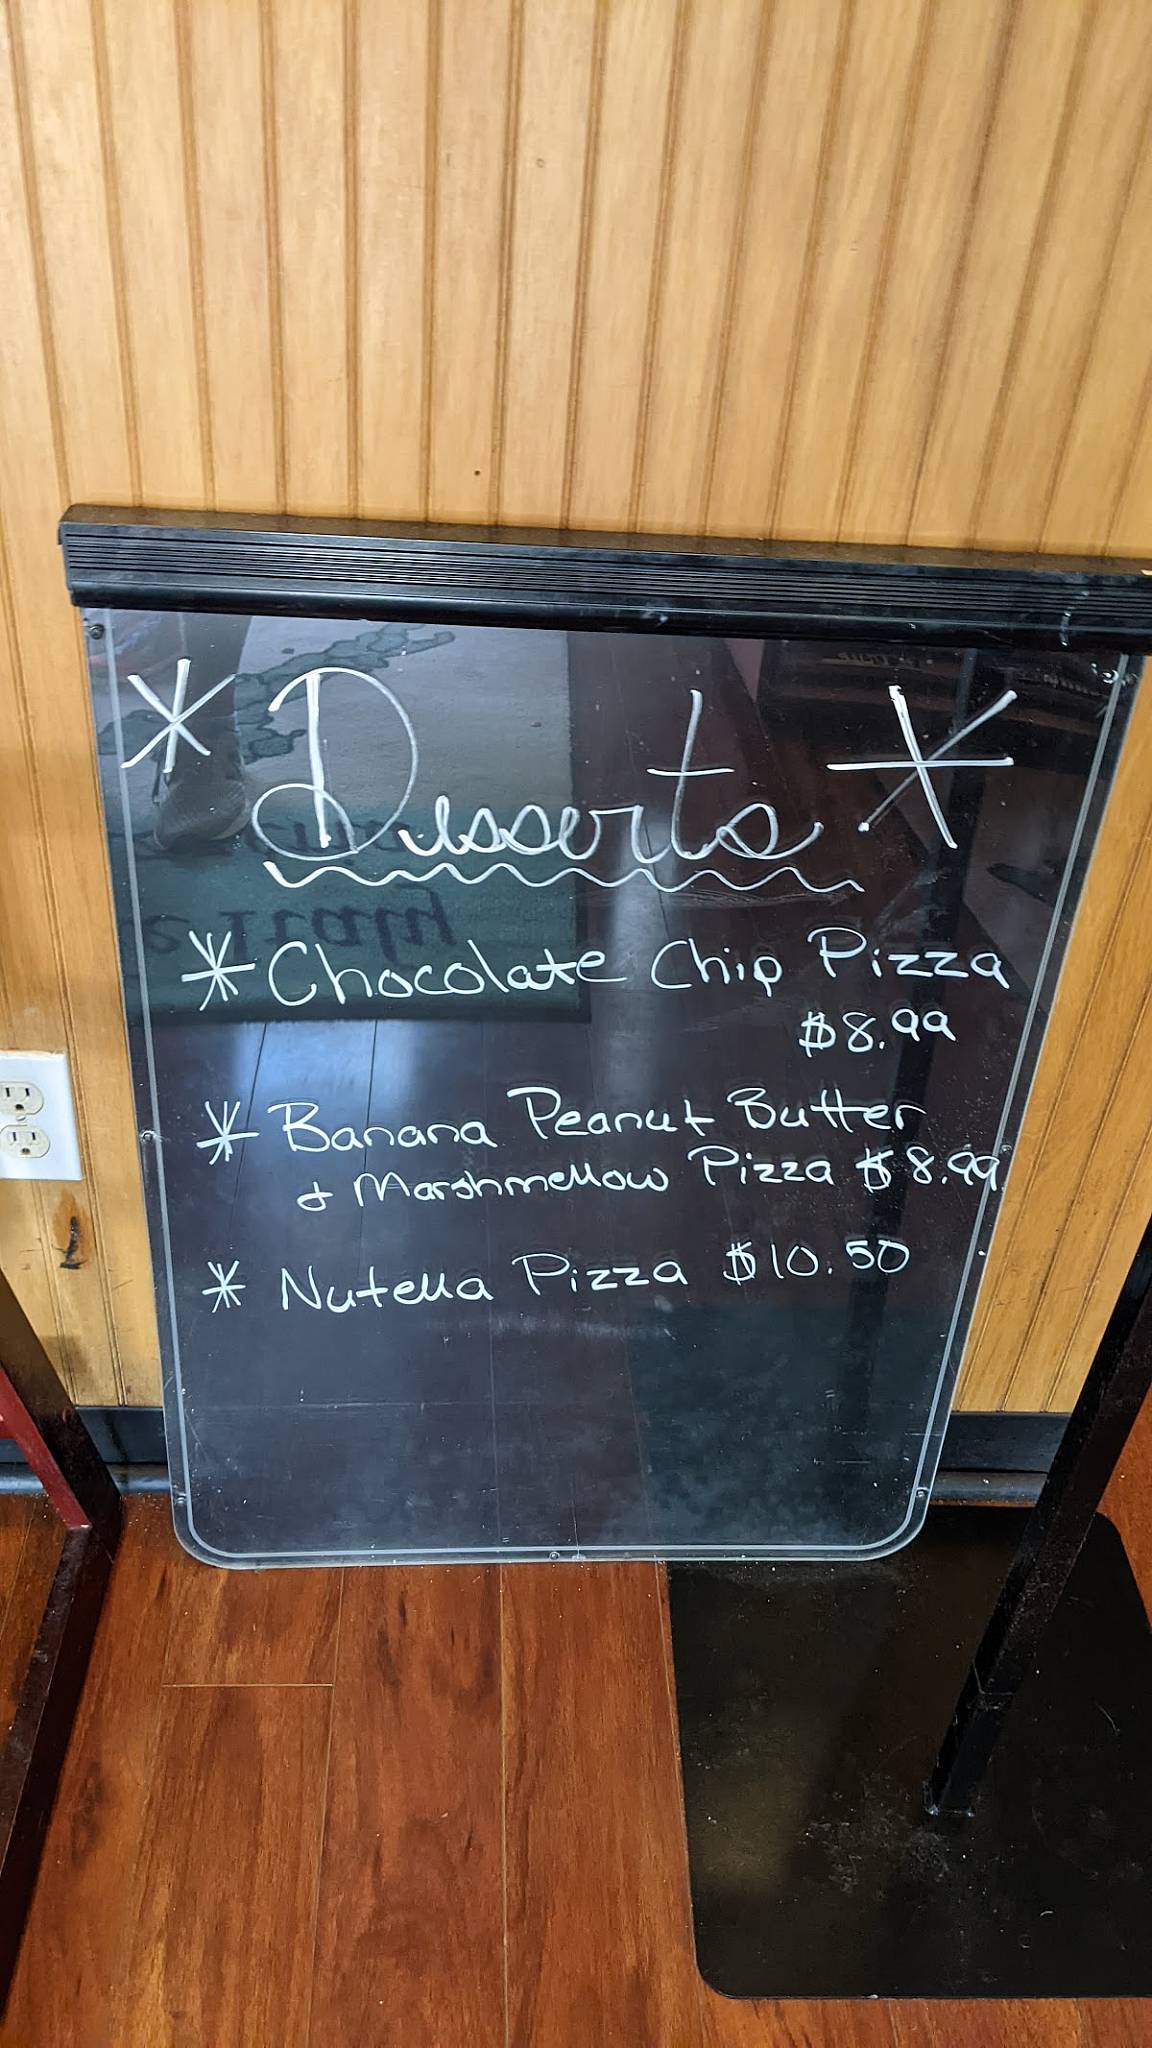 * Desserts *
* Chocolate Chip Pizza
$8.99
* Banana Peanut Butter
& Marshmellow Pizza $8.99
* Nutella Pizza $10.50